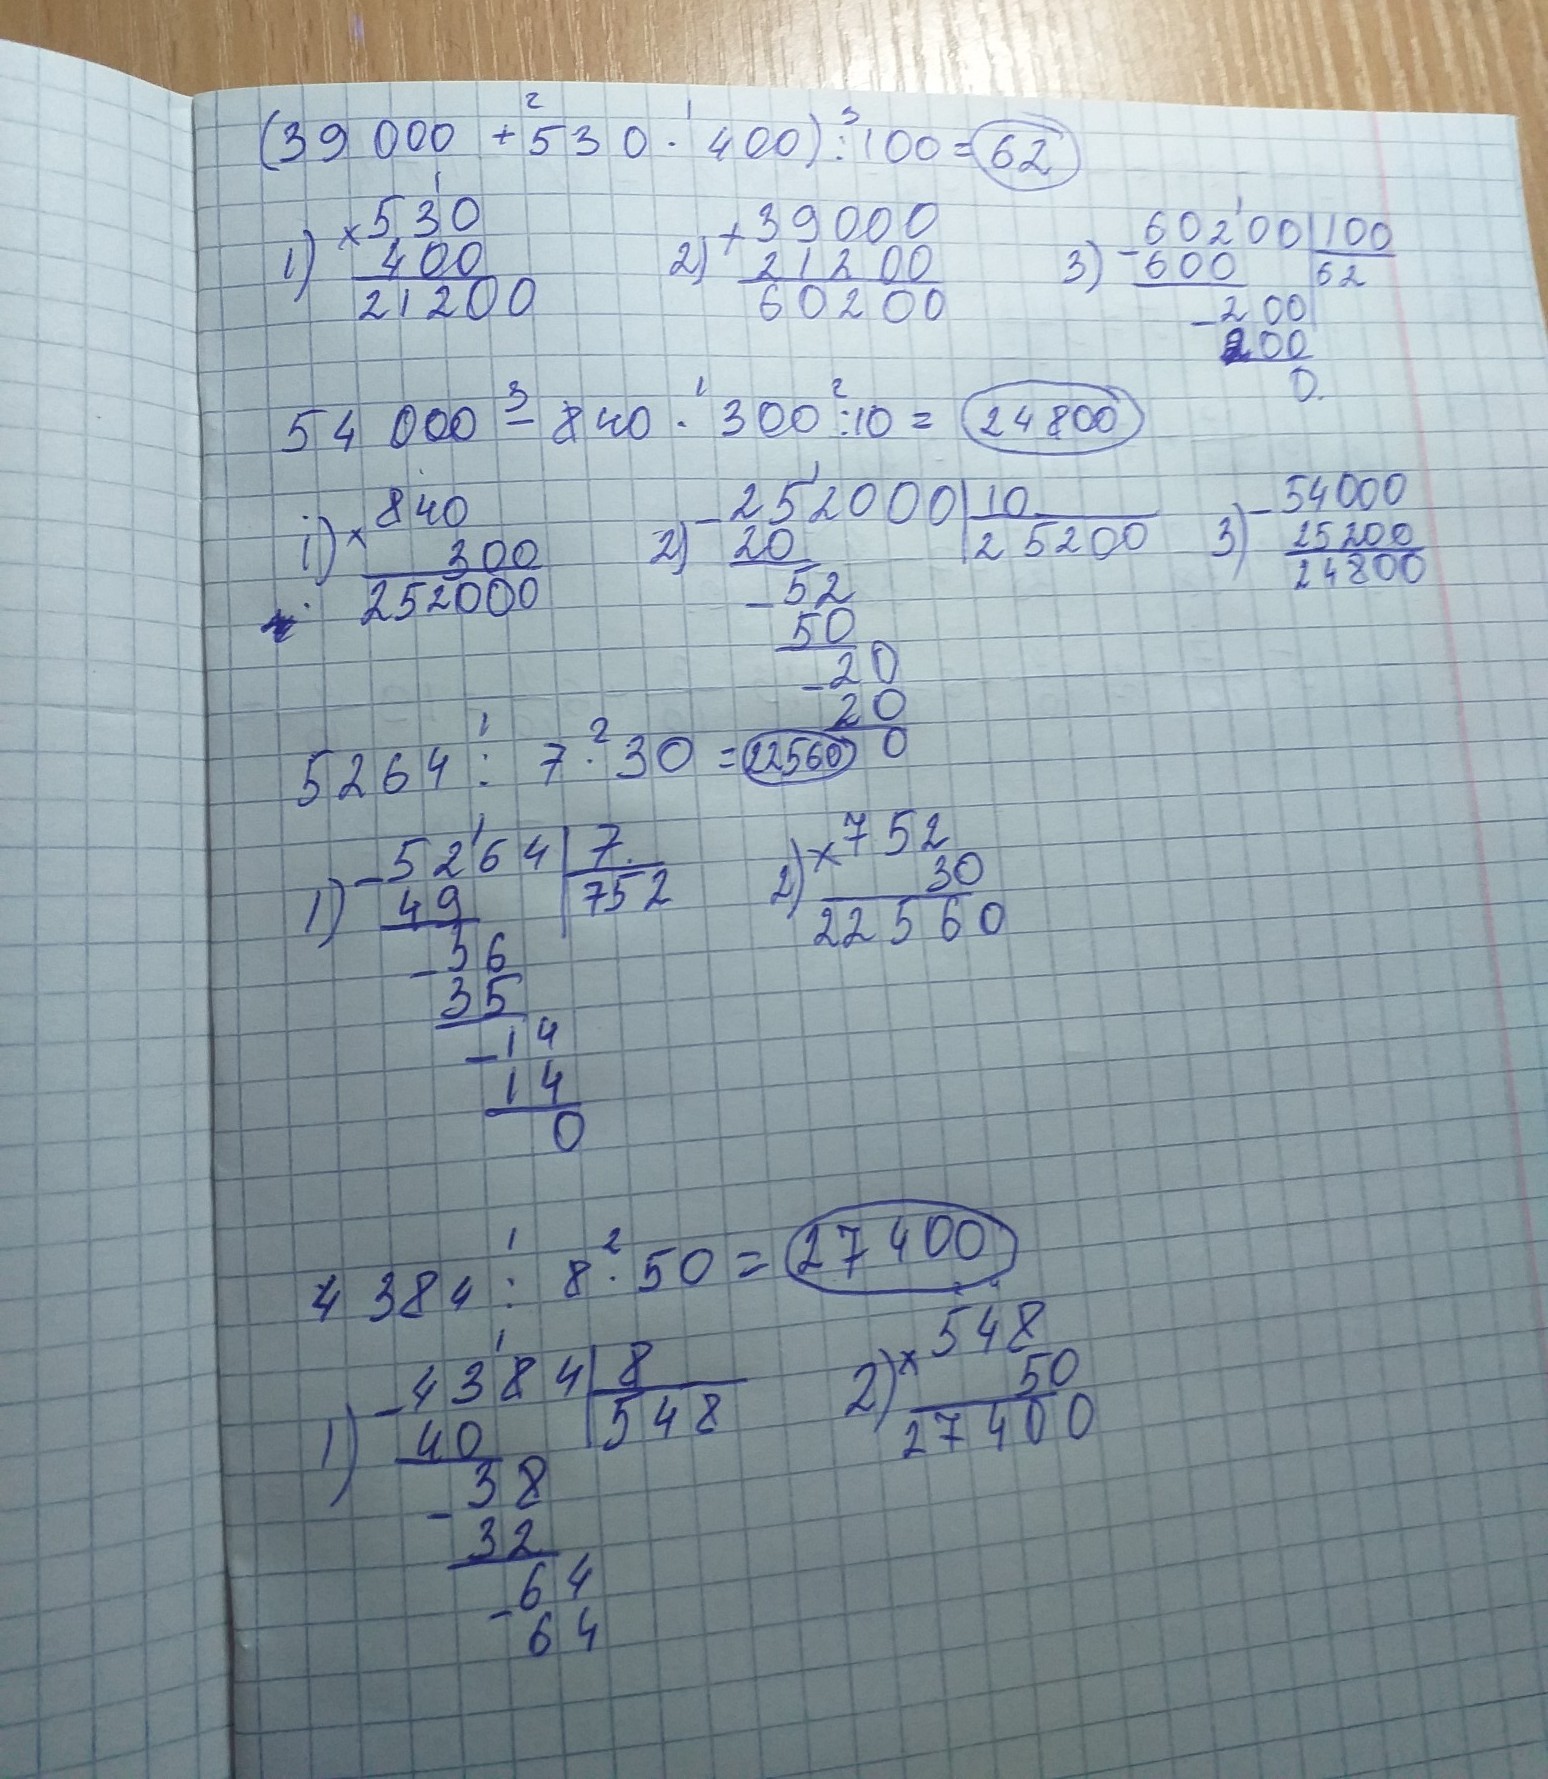 (39 000 + 530 · 400) : 100 = 62
2 1 3
1) × 530
400
21200
2) + 39000
21200
60200
3) - 60200 | 100
600 62
- 200
200
0
3 1 2
54 000 - 840 · 300 : 10 = 24800
1) × 840
300
252000
2) - 252000 | 10
20 25200
- 52
50
- 20
20
0
3) - 54000
25200
24800
1 2
5264 : 7 · 30 = 22560
1) - 5264 | 7
49 752
- 36
35
- 14
14
0
2) × 752
30
22560
1 2
4384 : 8 · 50 = 27400
1) - 4384 | 8
40 548
- 38
32
- 64
64
2) × 548
50
27400